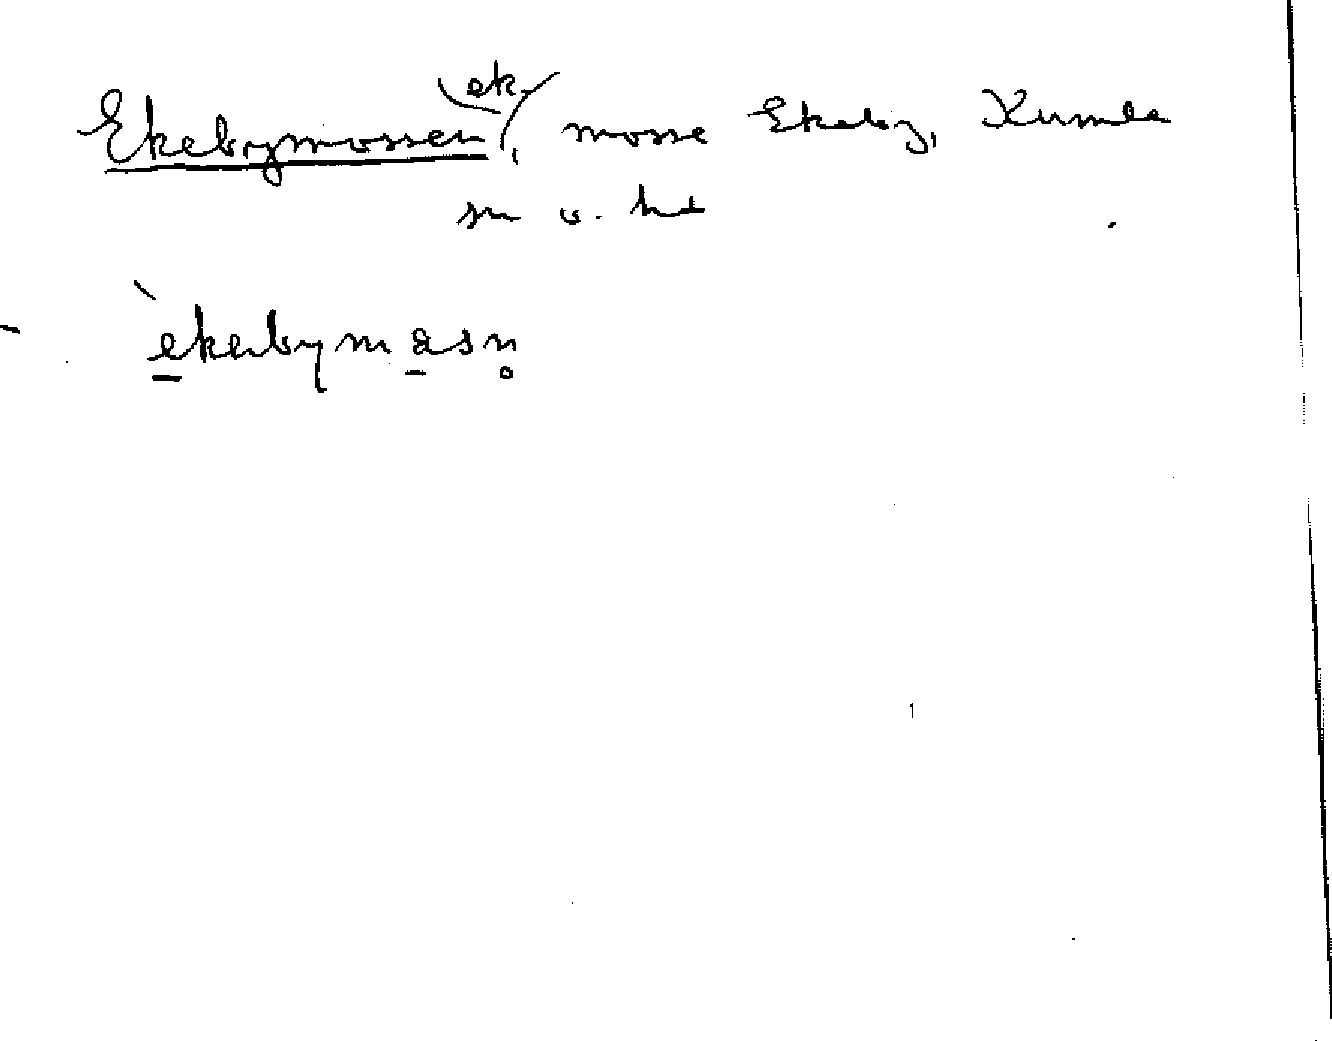 Ekebymossen (ek.), mosse Ekeby, Kumla
sn v. hd
`ekebymasn